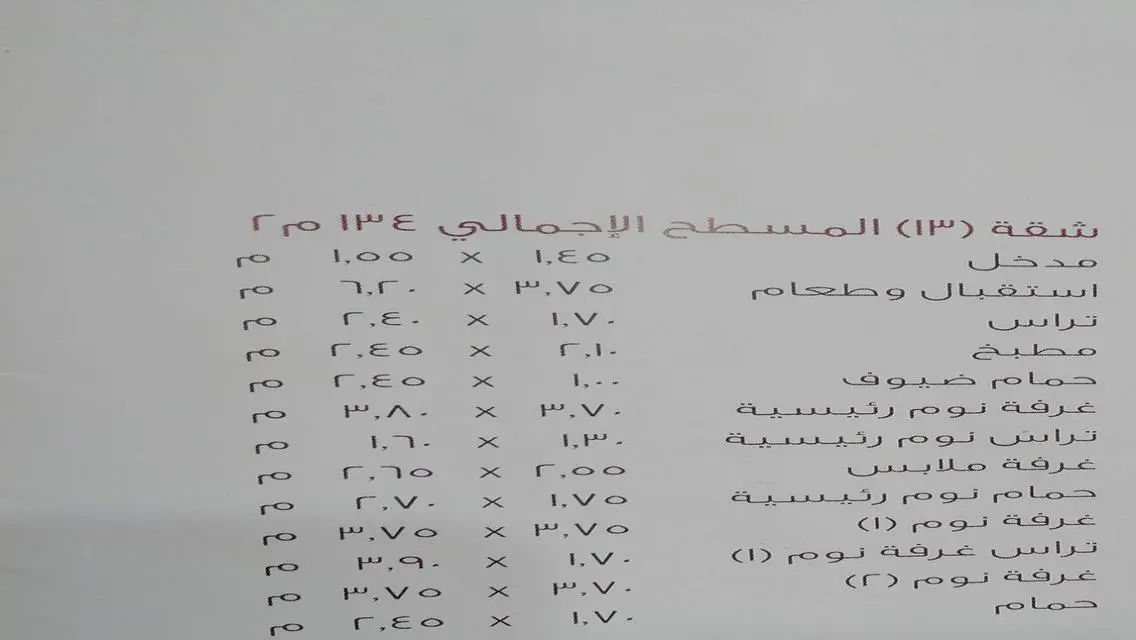 شقة (١٣) المسطح الإجمالي ١٣٤ م٢
مدخل ١,٤٥ × ١,٥٥ م
استقبال وطعام ٣,٧٥ × ٦,٢٠ م
تراس ١,٧٠ × ٢,٤٠ م
مطبخ ٢,١٠ × ٢,٤٥ م
حمام ضيوف ١,٠٠ × ٢,٤٥ م
غرفة نوم رئيسية ٣,٧٠ × ٣,٨٠ م
تراس نوم رئيسية ١,٣٠ × ١,٦٠ م
غرفة ملابس ٢,٥٥ × ٢,٦٥ م
حمام نوم رئيسية ١,٧٥ × ٢,٧٠ م
غرفة نوم (١) ٣,٧٥ × ٣,٧٥ م
تراس غرفة نوم (١) ١,٧٠ × ٣,٩٠ م
غرفة نوم (٢) ٣,٧٠ × ٣,٧٥ م
حمام ١,٧٠ × ٢,٤٥ م